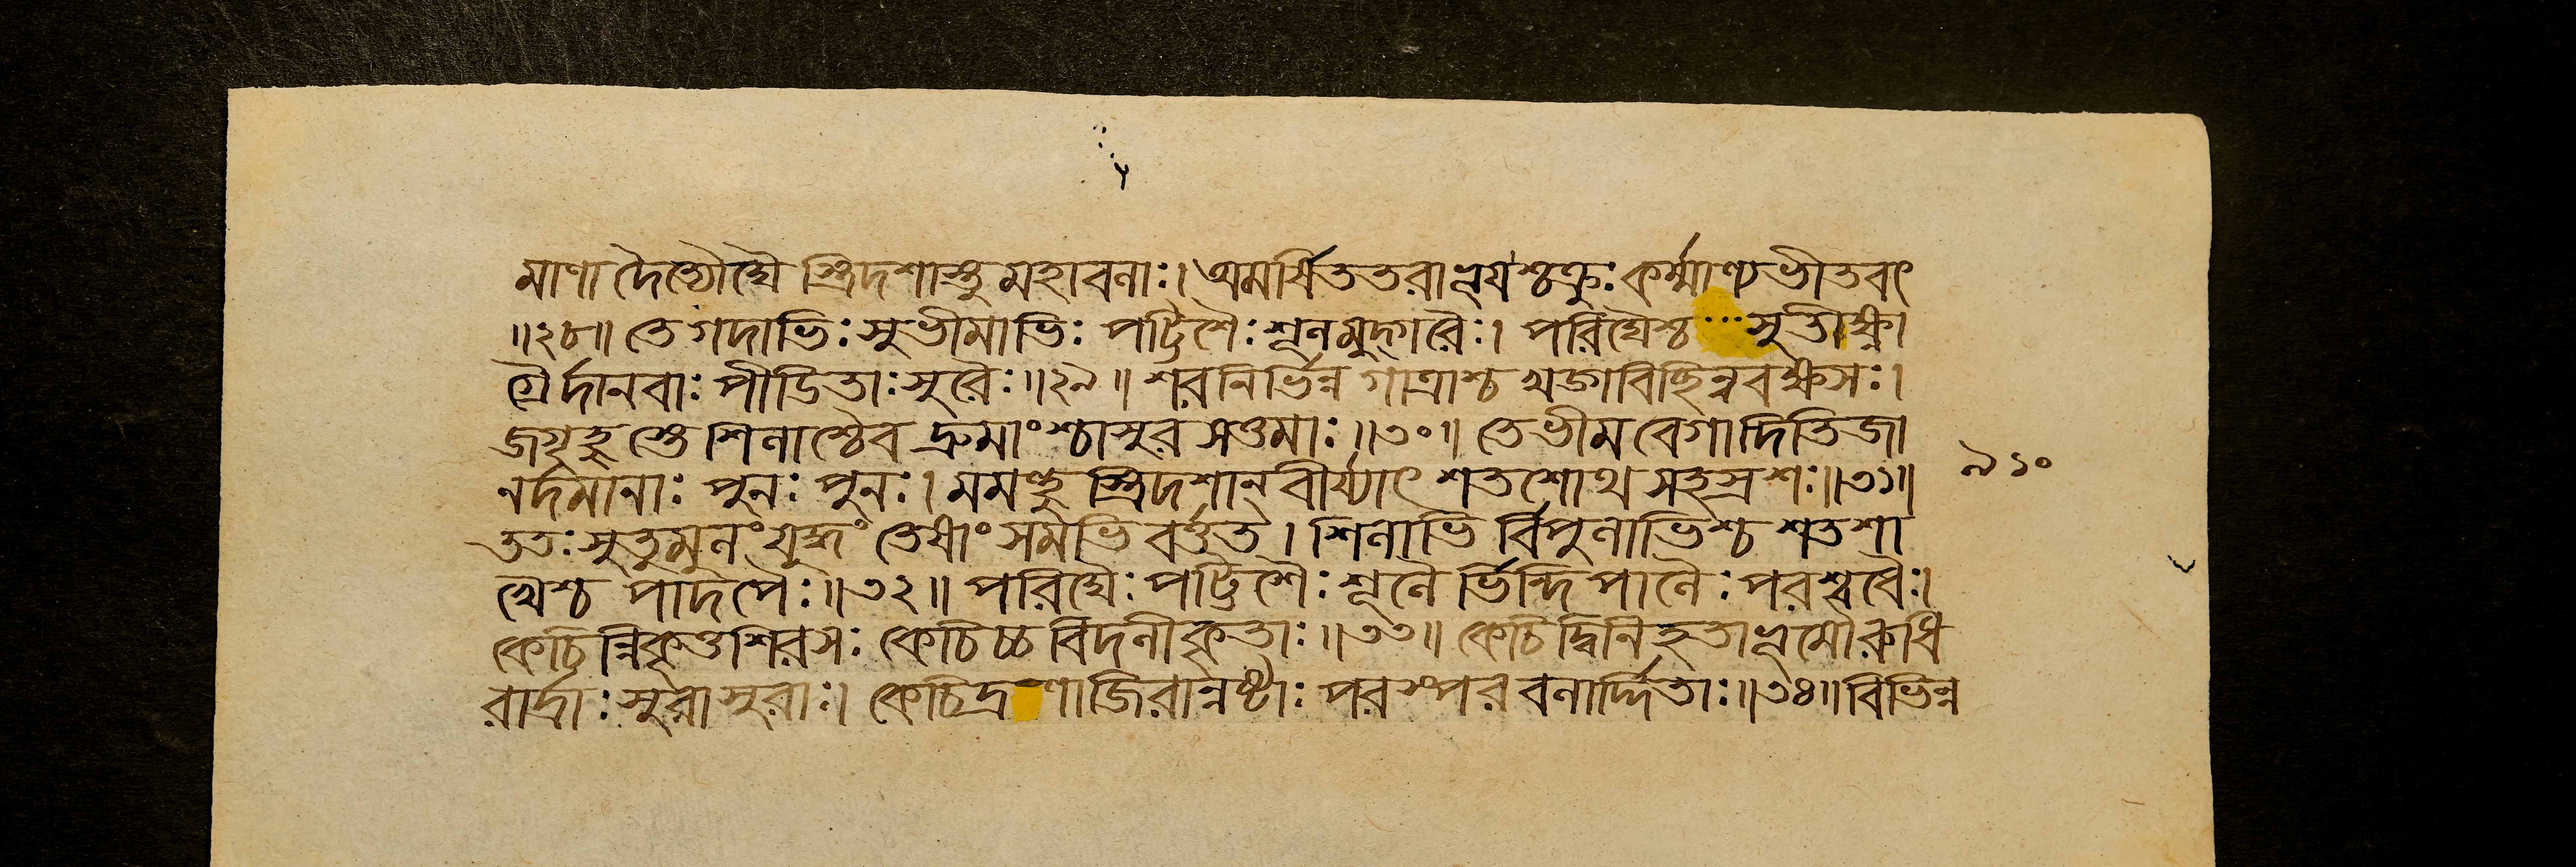 মাণা দৈত্যৌঘৈ স্ত্রিদশাস্তু মহাবনাঃ। অমর্ষিততরাভূয়শ্চক্রুঃ কর্ম্মাণ্যভীতবৎ
॥২৮॥ তে গদাভিঃ সুভীমাভিঃ পট্টিশৈঃ শূনমুদ্গরৈঃ। পরিঘৈশ্চ ... সুতীক্ষ্ণা
গ্রৈর্দানবাঃ পীডিতাঃ সুরৈঃ॥২৯॥ শরনির্ভিন্ন গাত্রাশ্চ খড্গবিচ্ছিন্নবক্ষসঃ।
জগৃহু স্তে শিনাশ্চৈব দ্রুমাংশ্চাসুর সত্তমাঃ॥৩০॥ তে ভীম বেগাদিতিজা
নর্দমানাঃ পুনঃ পুনঃ। মমন্থু স্ত্রিদশান্ বীর্য্যাৎ শতশোথ সহস্রশঃ॥৩১॥
৯১০
ততঃ সুতুমুনং যুদ্ধং তেষাং সমভি বর্ত্তত। শিনাভি র্বিপুনাভিশ্চ শতশা
খেশ্চ পাদপৈঃ॥৩২॥ পরিঘৈঃ পট্টিশৈঃ শূনৈ র্ভিন্দি পানৈঃ পরশ্বধৈঃ।
কেচিন্নিকৃত্তশিরসঃ কেচিচ্চ বিদনীকৃতাঃ॥৩৩॥ কেচিদ্বিনিহতাভূমৌ রুধি
রার্দ্রাঃ সুরাসুরাঃ। কেচিদ্র ণাজিরান্নষ্টাঃ পরস্পর বনার্দ্দিতাঃ॥৩৪॥ বিভিন্ন